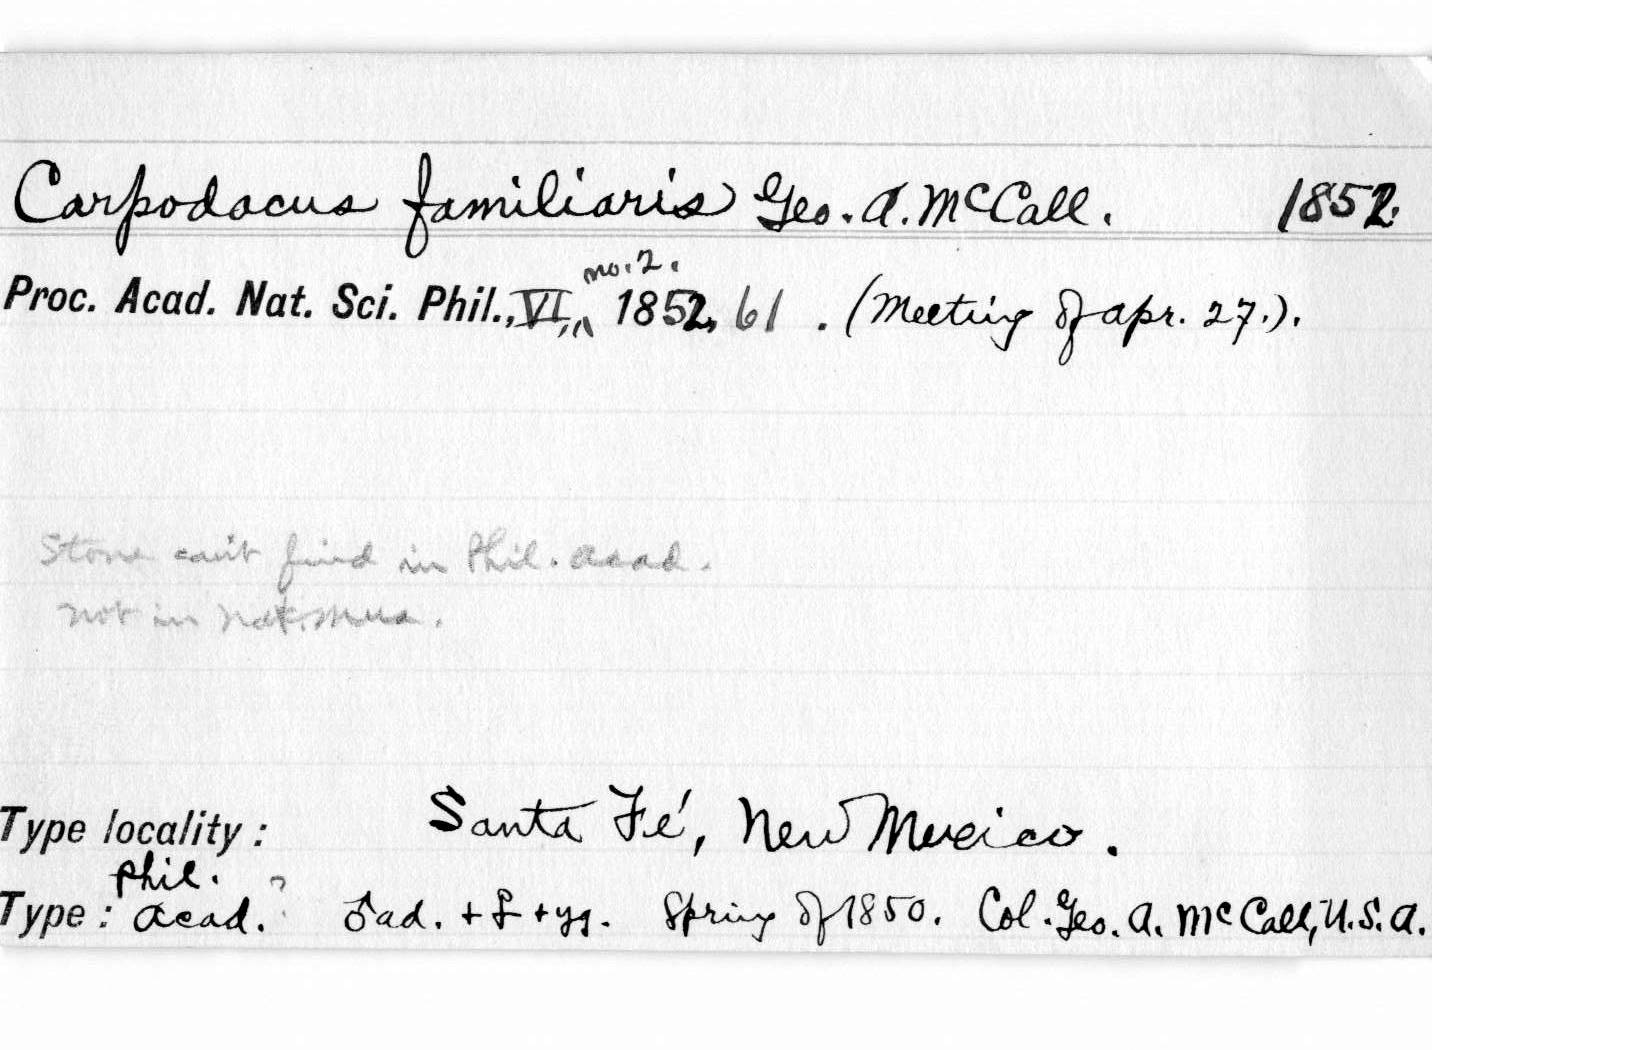 Carpodacus familiaris Geo. A. McCall. 1852.
no. 2.
Proc. Acad. Nat. Sci. Phil., VI, 1852, 61 . (Meeting of Apr. 27.).
Stone can't find in Phil. Acad.
Not in Nat. Mus.
Type locality: Santa Fé, New Mexico.
Phil. ?
Type: Acad. ♂ ad. + ♀ + yg. Spring of 1850. Col. Geo. A. McCall, U.S.A.